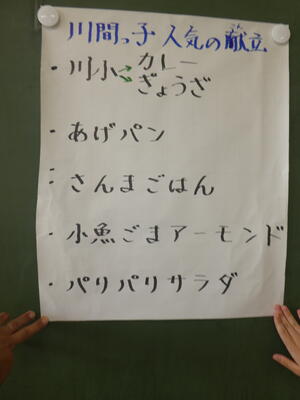 川間っ子 人気の献立
・川小 カレー
ぎょうざ
・あげパン
・さんまごはん
・小魚ごまアーモンド
・パリパリサラダ